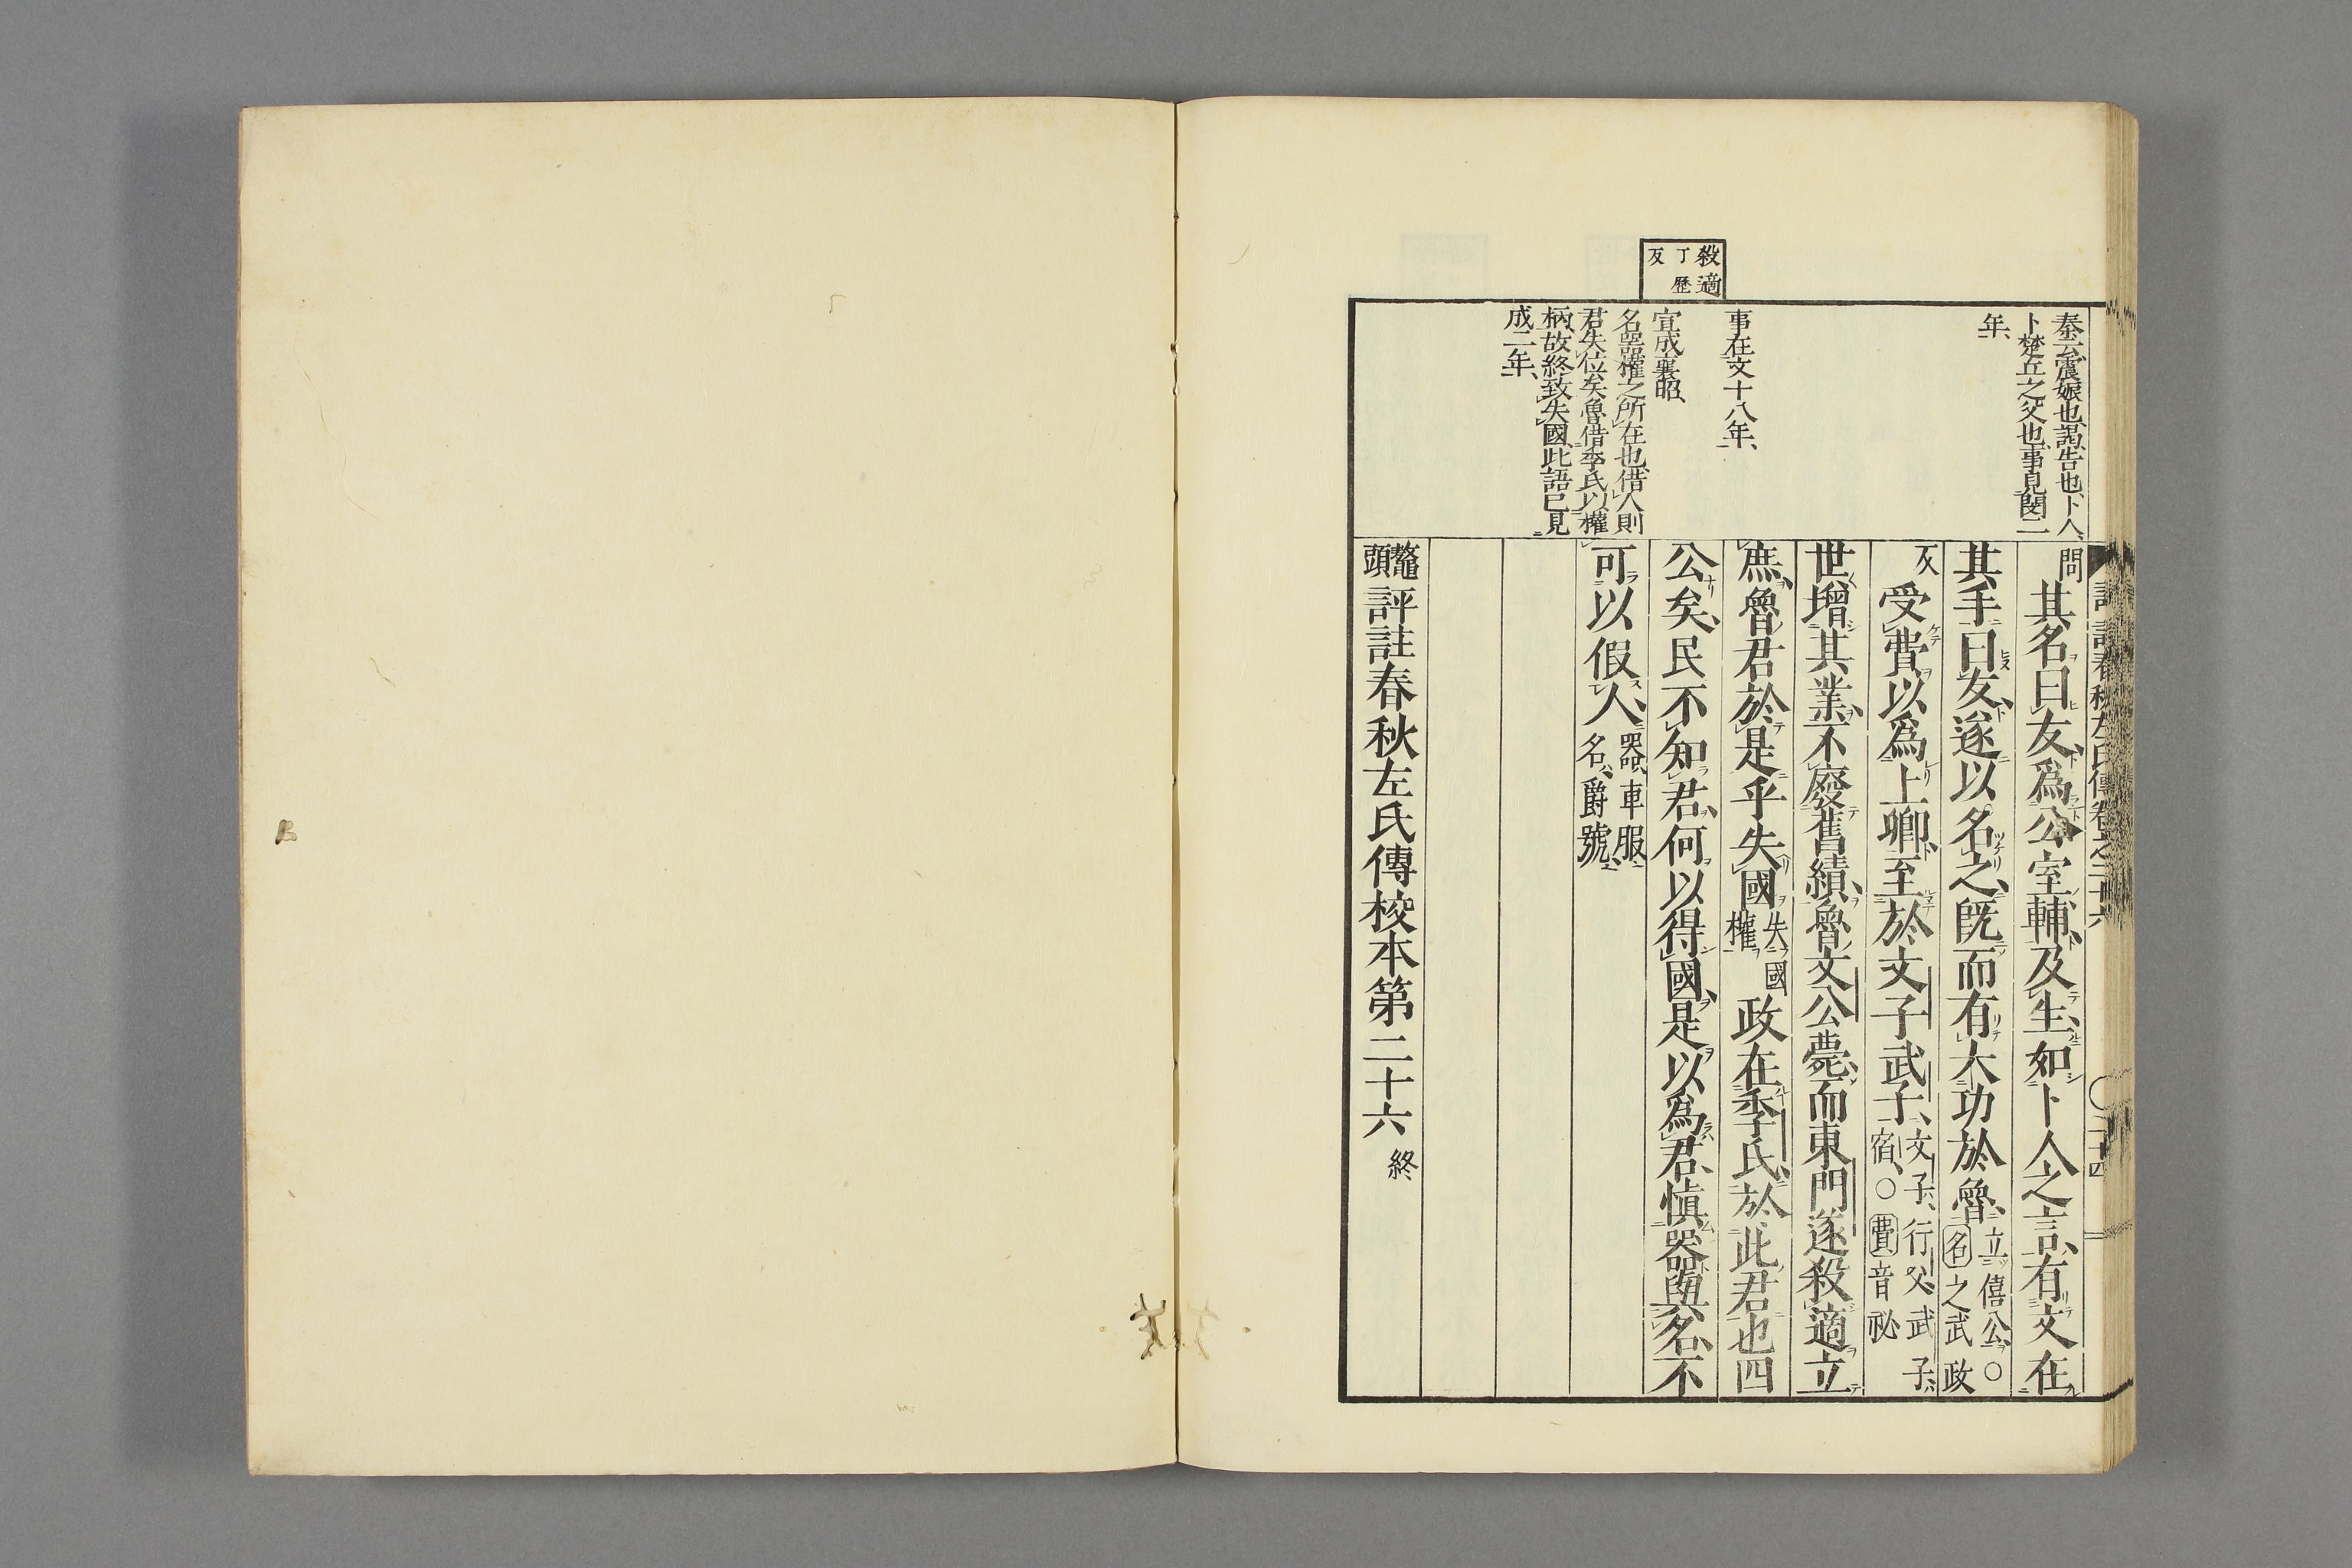 殺適
丁歷
反
秦云震娠也、謁告也、卜人、
卜楚丘之父也、事見閔二
年、
事在文十八年、
宣成襄昭、
名器權之所在也、借人則
君失位矣魯借季氏以權
柄、故終致失國、此語已見
成二年、
問
其名曰友、爲公室輔、及生、如卜人之言、有文在
其手曰友、遂以名之、旣而有大功於魯、
立僖公、○
名之武政
反
受費以爲上卿、至於文子武子、
文子、行父、武子、
宿、○費音祕
世增其業、不廢舊績、魯文公薨、而東門遂殺適立
庶、魯君於是乎失國
失國
權
政在季氏、於此君也四
公矣、民不知君、何以得國、是以爲君、愼器與名、不
可以假人、
器、車服、
名、爵號、
鼇頭評註春秋左氏傳校本第二十六 終
春秋左氏傳卷之二十六 ○ 二十四